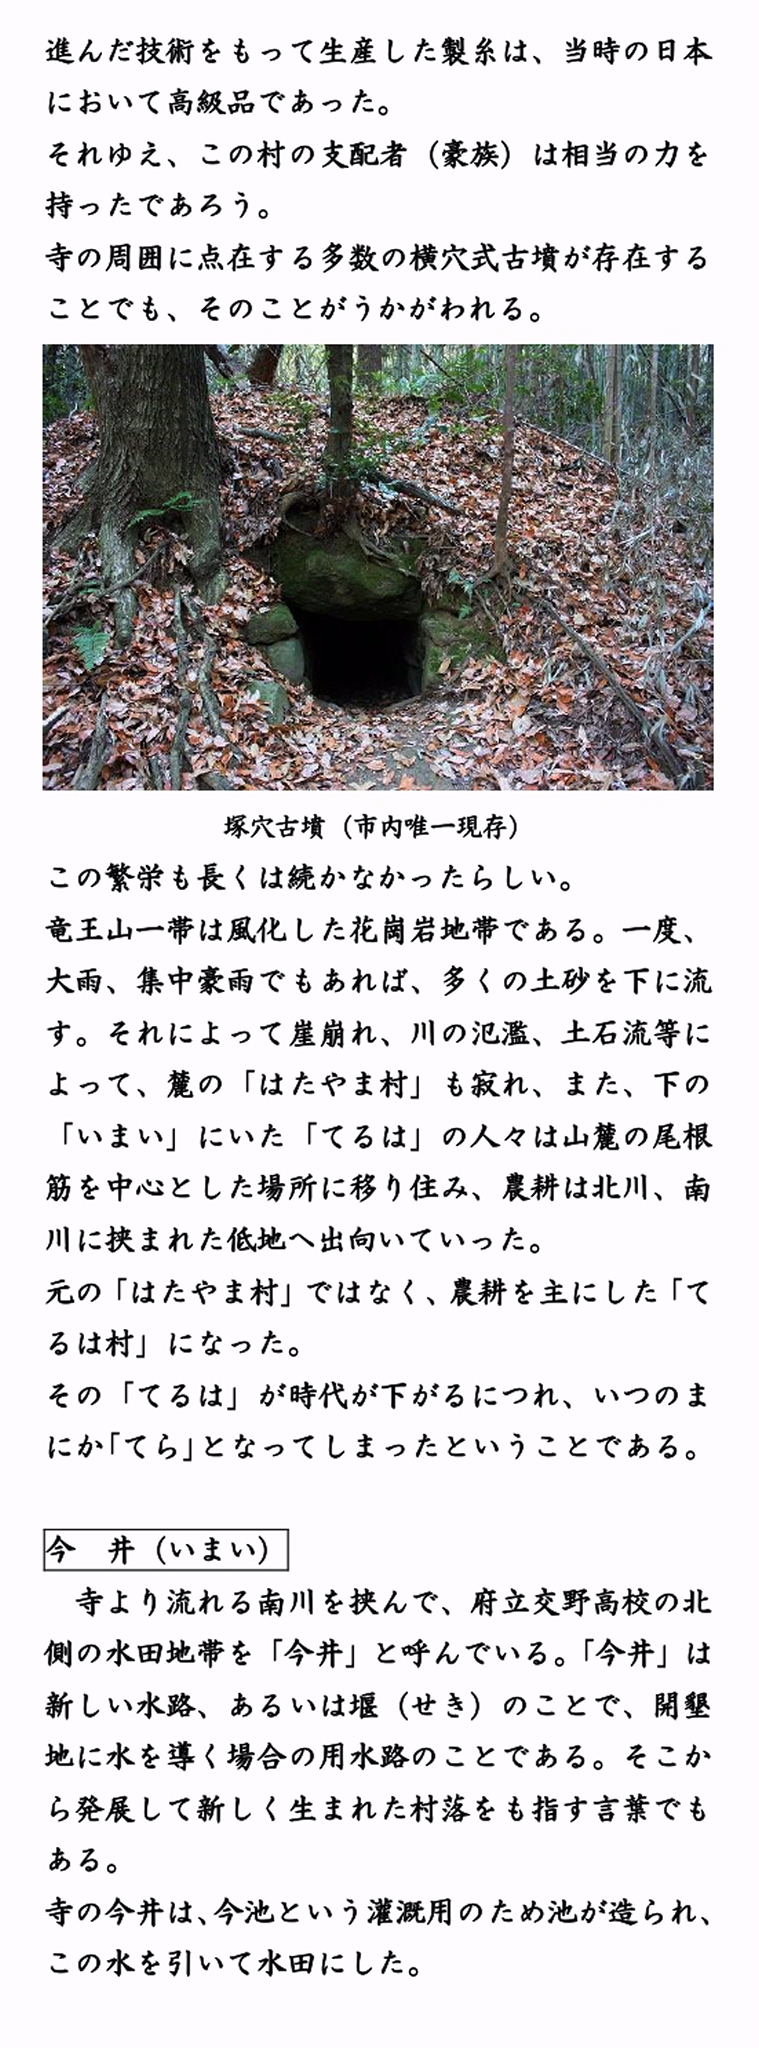 進んだ技術をもって生産した製糸は、当時の日本
において高級品であった。
それゆえ、この村の支配者（豪族）は相当の力を
持ったであろう。
寺の周囲に点在する多数の横穴式古墳が存在する
ことでも、そのことがうかがわれる。
塚穴古墳（市内唯一現存）
この繁栄も長くは続かなかったらしい。
竜王山一帯は風化した花崗岩地帯である。一度、
大雨、集中豪雨でもあれば、多くの土砂を下に流
す。それによって崖崩れ、川の氾濫、土石流等に
よって、麓の「はたやま村」も寂れ、また、下の
「いまい」にいた「てるは」の人々は山麓の尾根
筋を中心とした場所に移り住み、農耕は北川、南
川に挟まれた低地へ出向いていった。
元の「はたやま村」ではなく、農耕を主にした「て
るは村」になった。
その「てるは」が時代が下がるにつれ、いつのま
にか「てら」となってしまったということである。
今　井（いまい）
　寺より流れる南川を挟んで、府立交野高校の北
側の水田地帯を「今井」と呼んでいる。「今井」は
新しい水路、あるいは堰（せき）のことで、開墾
地に水を導く場合の用水路のことである。そこか
ら発展して新しく生まれた村落をも指す言葉でも
ある。
寺の今井は、今池という灌漑用のため池が造られ、
この水を引いて水田にした。